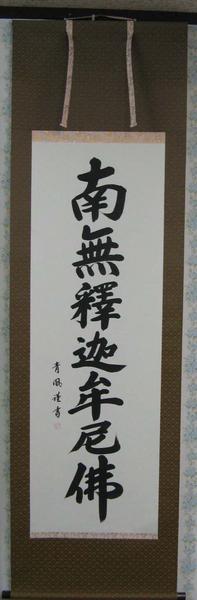 南無釋迦牟尼佛
青風謹書